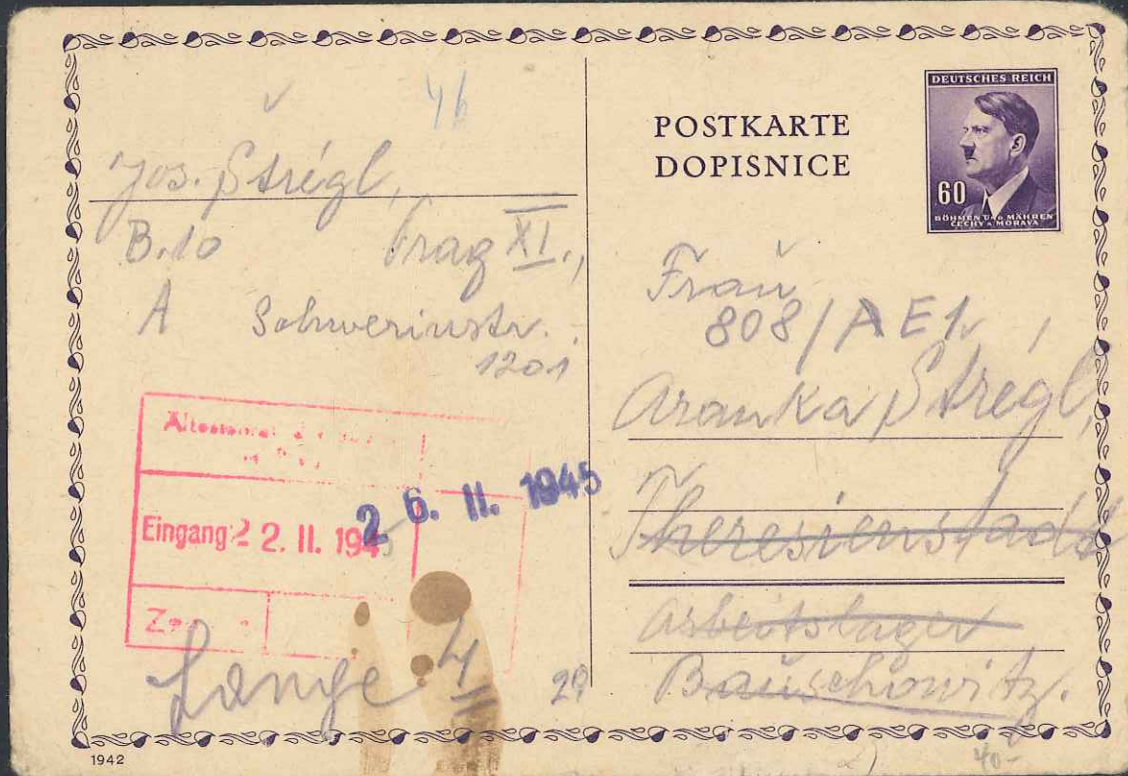 46
Jos. Štrégl,
B.10 Prag XI.,
A Schwerinstr.
1201
Eingang: 22. II. 194
26. II. 1945
Lange 4/II
29
1942
POSTKARTE
DOPISNICE
DEUTSCHES REICH
60
BÖHMEN U. MÄHREN
ČECHY A MORAVA
Frau
808/AE1
Aranka Štregl,
Theresienstadt
Arbeitslager
Bauschowitz.
40-